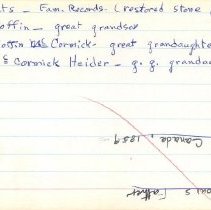 ts - Fam. Records. (restored stone
offin - great grandson
offin Cormick - great grandaughte
& Cormick Heider - g. g. granda
Canada, 1859
Father